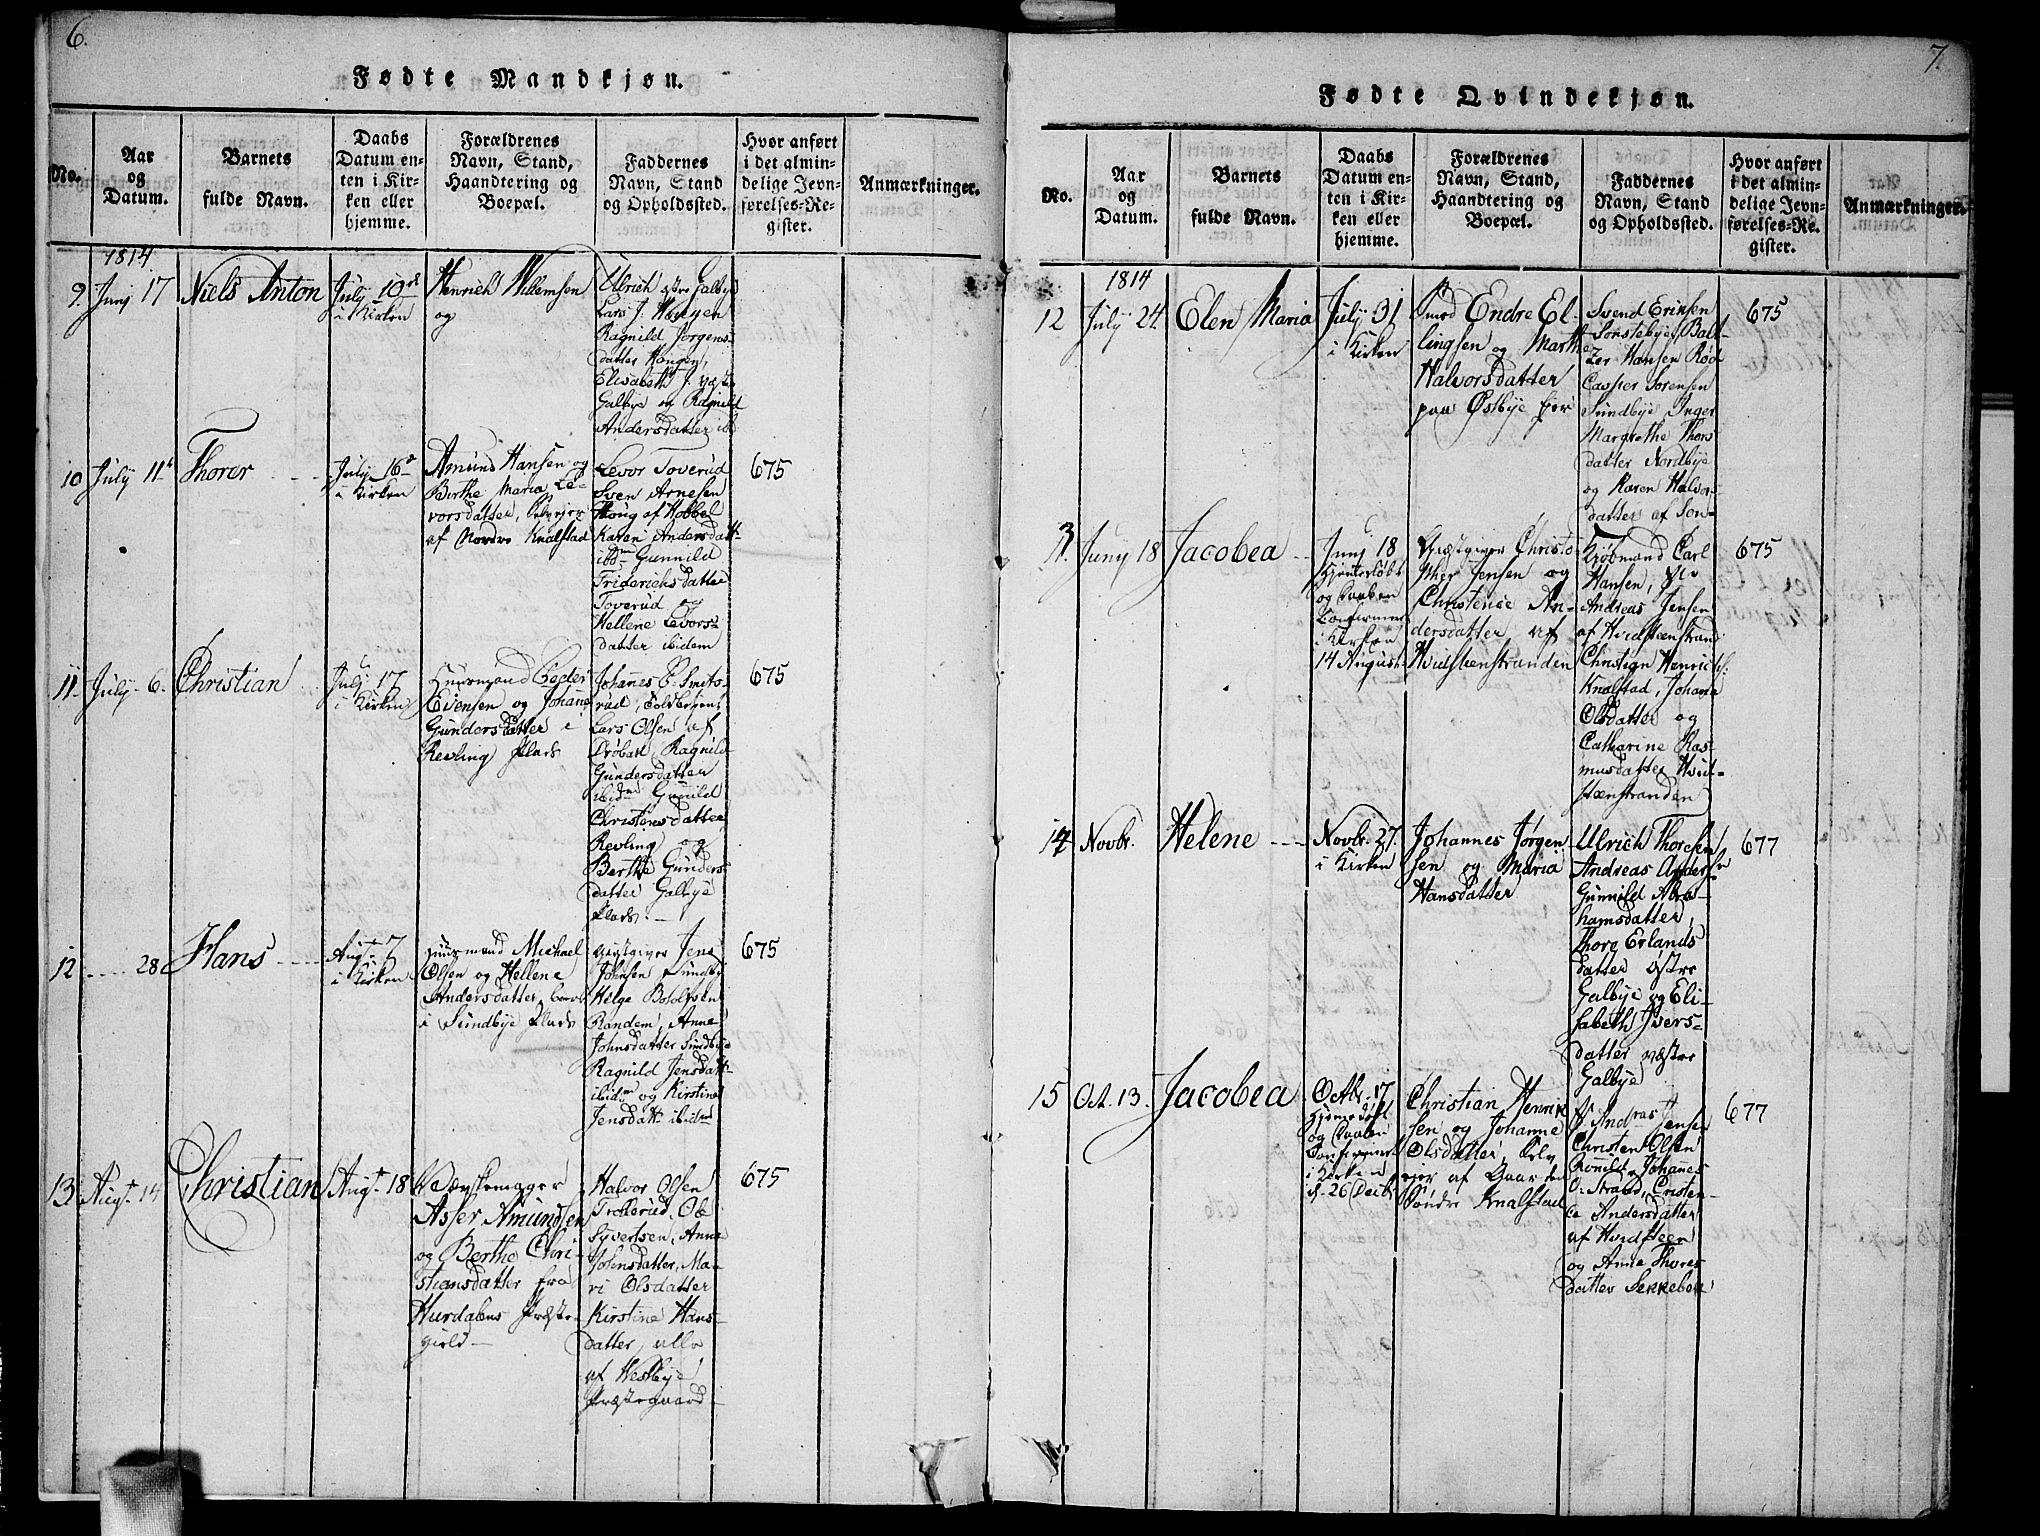 6.
Fødte Mandkjøn.
No.
Aar
og
Datum.
Barnets
fulde Navn.
Daabs
Datum en-
ten i Kir-
ken eller
hjemme.
Forældrenes
Navn, Stand,
Haandtering og
Boepæl.
Faddernes
Navn, Stand
og Opholdssted.
Hvor anført
i det almin-
delige Jevn-
førelses-Re-
gister.
Anmærkninger.
1814.
9. Junj 17
Niels Anton
July 10de
i Kirken
Henrich Willemsen
og
Ullrich østre Galbye
Lars J. Wangen
Ragnild Jorgens-
datter Wangen,
Elisabeth J. væstre
Galbye og Ragnild
Andersdatter ib
10 July 11t
Thorer
July 16de
i Kirken
Amund Hansen og
Birthe Maria Le-
vorsdatter,
af Nordre Knalstad
Levor Toverud
Sven Arnesen
Houg af Hobbel
Karen Andersdatt-
ibdm Gunnild
Friderichsdatter
Toverud og
Hellene Levors-
datter ibidem
675
11- July 6.
Christian
July 17
i Kirken
Huusmand Peder
Eivensen og Johanne
Gundersdatter i
Revling Plads
Johannes E. Smits-
rud,
Lars Olsen af
Drøbak, Ragnild
Gundersdatter
ibidm Gunild
Christensdatter
Revling og
Berthe Gunders-
datter Galbye
Plads.
675
12 ---- 28
Hans
Augt 7
i Kirken
Huusmand Michael
Olsen og Hellene
Andersdatter,
i Sundbye Plads
Jens
Johnsen Sundby
Helge Botolfsen
Randem, Anne
Johnsdatter Sundbye
Ragnild Jensdatt-
ibidm og Kirstine
Jensdatt ibidm
675
13 Augt. 14
Christian
Augt. 18
Asser Amundsen
og Berthe Chri-
stiansdatter fra
Hurdalens Præste-
gield
Halvor Olsen
Frokerud, Ole
Syvertsen, Anna
Johensdatter, Ma-
ri Olsdatter
Kirstine Hans-
datter, alle
af Westbye
Præstegaard
675
7.
Fødte Qvindekjøn.
No.
Aar
og
Datum.
Barnets
fulde Navn.
Daabs
Datum en-
ten i Kir-
ken eller
hjemme.
Forældrenes
Navn, Stand,
Haandtering og
Boepæl.
Faddernes
Navn, Stand
og Opholdssted.
Hvor anført
i det almin-
delige Jevn-
førelses-Re-
gister.
Anmærkninger.
1814
12 July 24.
Elen Maria
July 31
i Kirken
Smed Endre El-
lingsen og Marthe
Halvorsdatter
paa Østbye Eier
Svend Eriksen
Sønstebye, Balt-
zer Hansen Rød
Casper Sorensen
Sundbye, Inger
Margrethe Thors
datter Nordbye
og Karen Halvors-
datter af Son-
675
Juny 18
Jacobea
Junj 18
Hjemmedøbt
og Daaben
Confirmeret
i Kirken
14 August
Giæstgiver Christo-
pher Jensen og
Christense An-
dersdatter af
Hvidsteenstranden
Kjøbmand Carl
Hansen,
Andreas Jensen
af Hvidsteenstrand
Christian Henrichs:
Knalstad, Johana
Olsdatter og
Catharine Ras-
musdatter Hvid-
steenstranden
675
14 Novbr.
Helene
Novbr. 27.
i Kirken
Johannes Jørgen
sen og Maria
Hansdatter
Ulrich Thoresen
Andreas Anders-
Gunnild Abra-
hamsdatter,
Thore Erlands
datter østre
Galbye og Eli-
sabeth Ivers-
datter væstre
Galbye
677
15 Oct. 13.
Jacobea
Octbr. 17
Hjemedøbt
og Daaben
Confirmeret
i Kirken
d. 26 Decbr
Christian Henrik
sen og Johanne
Olsdatter, Selv
eier af Gaarden
Søndre Knalstad
Andras Jensen
Christen Olsen
Ronnild Johannes
D. Strand, Cristen-
ce Andersdatter
af Hvidsteen
og Anne Thores
datter Sekkebek
677